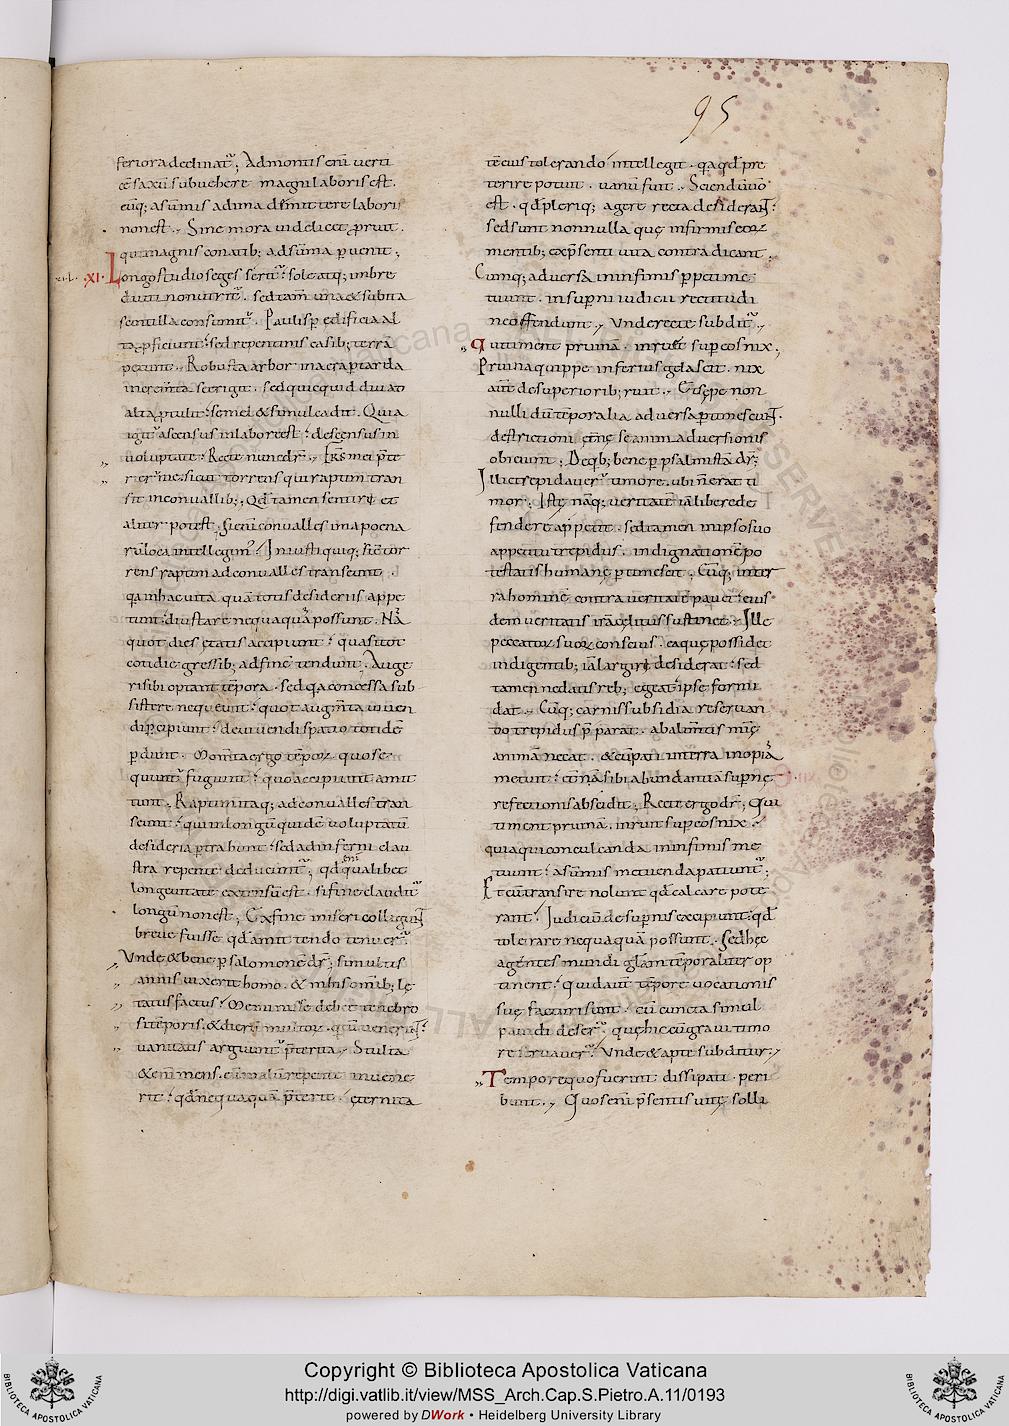 95
feriora declinat᷑; Ad montis eni᷑ verti
cē saxū subvehere magni laboris est.
eūq; a sūmis ad ima dimittere labori
non est., Sine mora videlicet ꝓruit.
qui magnis conatib; ad sūma ꝑvenit;
XI. Longo studio seges serit᷑; sole atq; imbre
diuti nonutrit᷑. sed tam̄ una & subita
scintilla consumit᷑. Paulisꝑ edificia al
ta ꝓficiunt; sed repentinis casib; terrā
petunt., Robusta arbor in aera ꝑ tarda
increm̄ta se erigit. sed quicquid diu ad
alta ꝓtulit; semel & simul cadit. Quia
igit᷑ ascensus in labore est; descensus in
voluptate; Recte nunc dr̄., Fr̄s mei p̄te
rier̄ me. sicut torrens qui raptim tran
sit in convallib;; Qd̄ tamen sentiri et
aliter potest; si eni᷑ convalles ima poena
rū loca intellegim᷑; Iniusti quiq; sic̄ tor
rens raptim ad convalles transeunt.
qa in hac vita quā totis desideriis appe
tunt; diu stare nequaquā possunt. Nā
quot dies ętatis accipiunt; quasi tot
cotidie gressib; ad finē tendunt. Auge
ri sibi optant tēpora. sed qa concessa sub
sistere nequeunt; quot augm̄ta vivendi
ꝑcipiunt; de vivendi spatio totidē
ꝑdunt. Mom̄ta ergo tēpoꝝ quo se
quunt᷑ fugiunt; quo accipiunt amit
tunt., Raptim itaq; ad convalles tran
seunt; qui in longū quidē voluptatū
desideria ꝑtrahunt; sed ad inferni clau
stra repente deducunt᷑; qd̄ enī qualibet
longevitate extensū est. si fine claudit᷑
longū non est; Ex fine miseri colligunt
breve fuisse qd̄ amittendo tenuer̄.
Unde & bene ꝑ salomonē dr̄; si multis
annis vixerit homo. & in his omīb; lę
tatus fuerit; Meminisse debet tenebro
si tēporis. & dierū multoꝝ. qui cū venerint;
vanitatis arguunt᷑ p̄terita., Stulta
& enim mens. cū malū repente invene
rit; qd̄ nequaquā p̄terit. ęternita
tē eius tolerando intellegit. qa qd̄ pre
terire potuit. vanū fuit., Sciendū vō
est. qd̄ pleriq; agere recta desiderant;
sed sunt nonnulla quę infirmis eoꝝ
mentib; ex p̄senti vita contradicant;
Cumq; adversa in infimis ꝑpeti me
tuunt. in suꝑni iudicii rectitudi
nē offendunt., Unde recte subdit᷑.,
Qui timent pruinā. inruet suꝑ eos nix;
Pruina quippe inferius gelascit. nix
aut̄ de superiorib; ruit., Et sępe non
nulli dū tēporalia adversa ꝑtimescunt.
destrictioni ęternę se animadversionis
obiciunt; De qb; bene ꝑ psalmistā dr̄;
Illic trepidaver̄ timore. ubi n̄ erat ti
mor; Iste naq; veritatē iā libere de
fendere appetit. sed tamen in ipso suo
appetitu trepidus. indignationē po
testatis humanę ꝑtimescit., Cūq; in ter
ra hominē contra veritatē pavet; eius
dem veritatis irā cęlitus sustinet., Ille
peccatoꝝ suoꝝ conscius. ea quę possidet
indigentib; iā largiri desiderat; sed
tamen ne datis reb; egeat ipse formi
dat., Cūq; carnis subsidia reservan
do trepidus p̄parat. ab alim̄tis mīę
animā necat. & cū pati in terra inopiā
metuit; ęternā sibi abundantiā suꝑnę
refectionis abscidit; Recte ergo dr̄; Qui
timent pruinā. inruit suꝑ eos nix.,
quia qui conculcanda in infimis me
tuunt; a sūmis metuenda patiunt᷑;
Et cū transire nolunt qd̄ calcare pote
rant; Iudiciū de suꝑnis excipiunt; qd̄
tolerare nequaquā possunt., Sed hęc
agentes mundi glām tēporaliter op
tinent; quid aut̄ tēpore vocationis
suę facturi sunt. cū cuncta simul
pavidi deser̄. quę hic cū gravi timo
re servaver̄; Unde & apte subditur.,
Tempore quo fuerint dissipati. peri
bunt., Quos eni᷑ p̄sentis vitę solli
Copyright © Biblioteca Apostolica Vaticana
http://digi.vatlib.it/view/MSS_Arch.Cap.S.Pietro.A.11/0193
powered by DWork • Heidelberg University Library
BIBLIOTECA APOSTOLICA VATICANA
BIBLIOTECA APOSTOLICA VATICANA